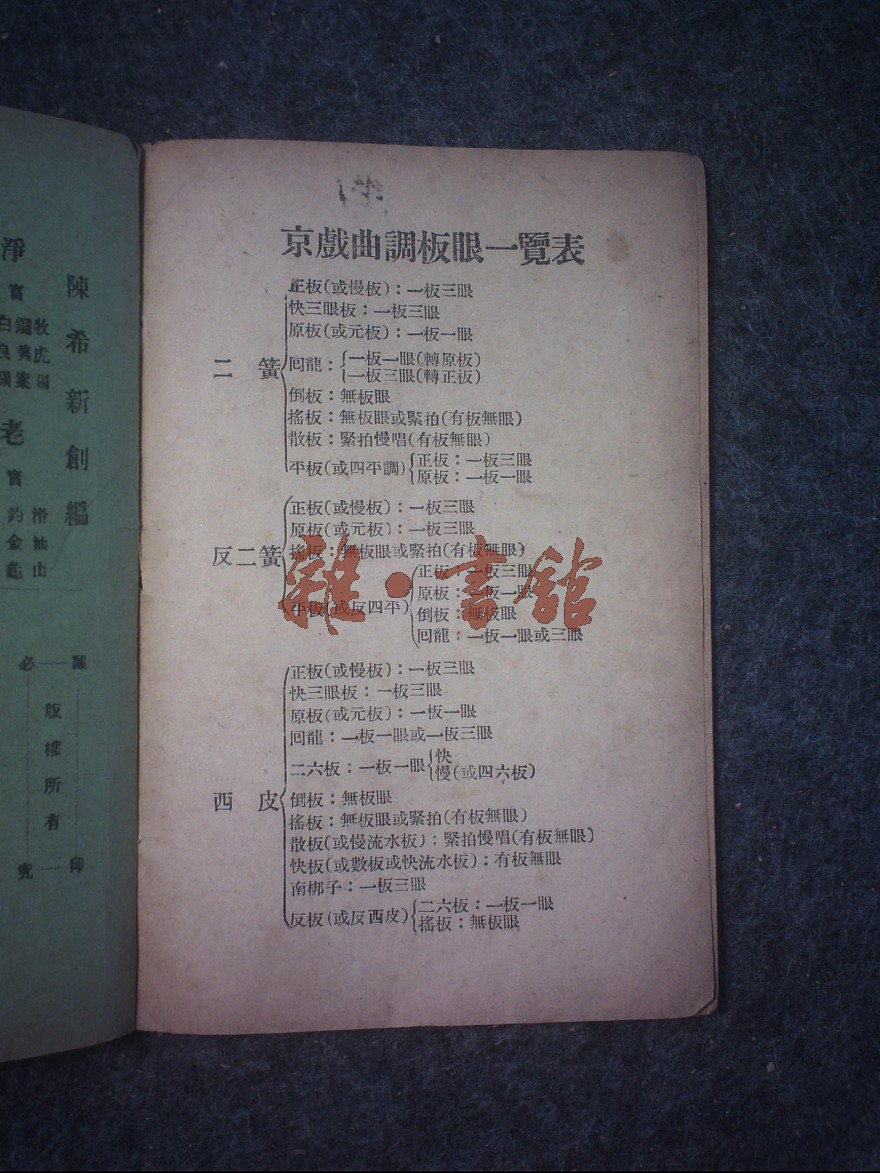 京戲曲調板眼一覽表
二簧
正板(或慢板):一板三眼
快三眼板:一板三眼
原板(或元板):一板一眼
回龍:
一板一眼(轉原板)
一板三眼(轉正板)
倒板:無板眼
搖板:無板眼或緊拍(有板無眼)
散板:緊拍慢唱(有板無眼)
平板(或四平調)
正板:一板三眼
原板:一板一眼
反二簧
正板(或慢板):一板三眼
原板(或元板):一板三眼
搖板:無板眼或緊拍(有板無眼)
平板(或反四平)
正板:一板三眼
原板:一板一眼
倒板:無板眼
回龍:一板一眼或三眼
西皮
正板(或慢板):一板三眼
快三眼板:一板三眼
原板(或元板):一板一眼
回龍:一板一眼或一板三眼
二六板:一板一眼
快
慢(或四六板)
倒板:無板眼
搖板:無板眼或緊拍(有板無眼)
散板(或慢流水板):緊拍慢唱(有板無眼)
快板(或數板或快流水板):有板無眼
南梆子:一板三眼
反板(或反西皮)
二六板:一板一眼
搖板:無板眼
雜·書館
陳希新創編
淨
老
滑油山
版權所有
必究